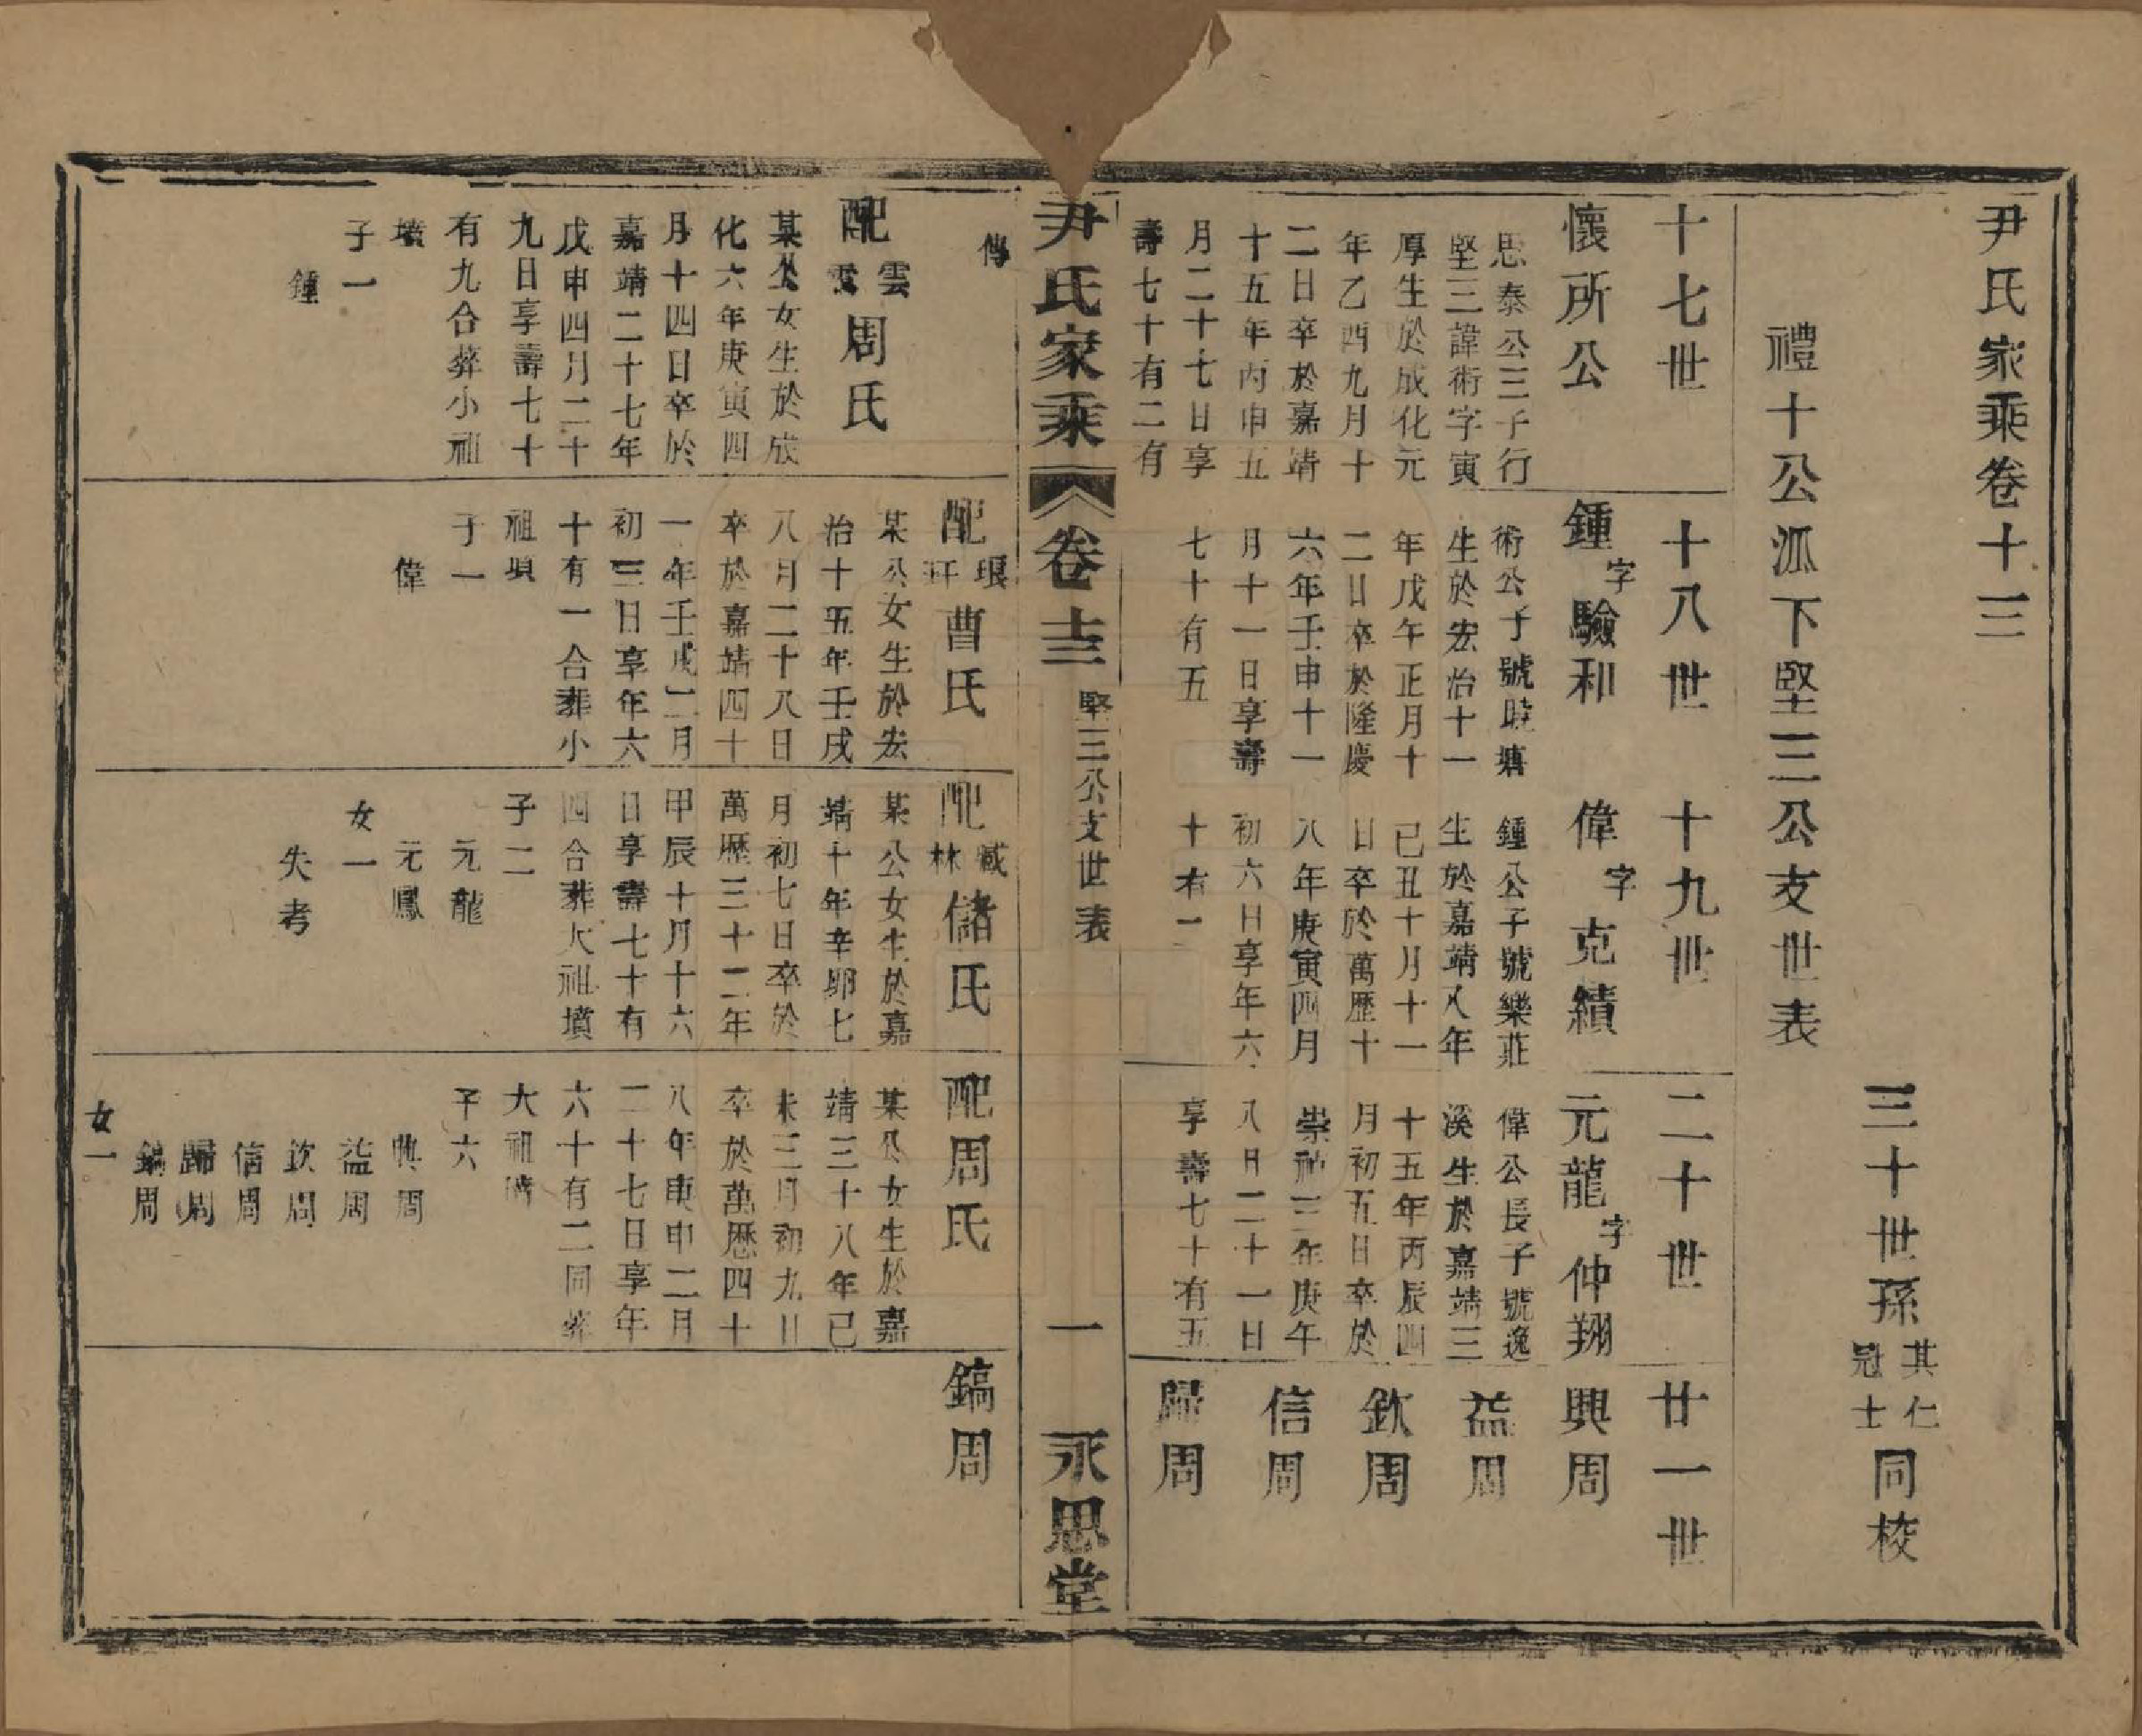 尹氏家乘卷十三
三十世孫其仁冠士同校
禮十公派下堅三公支世表
十七世
懷所公
思泰公三子行
堅三諱術字寅
厚生於成化元
年乙酉九月十
二日卒於嘉靖
十五年丙申五
月二十七日享
壽七十有二有
傳
配雲雲周氏
某公女生於成
化六年庚寅四
月十四日卒於
嘉靖二十七年
戊申四月二十
九日享壽七十
有九合葬小祖
墳
子一
鍾
十八世
鍾字驗和
術公子號時塘
生於宏治十一
年戊午正月十
二日卒於隆慶
六年壬申十一
月十一日享壽
七十有五
配珢玕曹氏
某公女生於宏
治十五年壬戌
八月二十八日
卒於嘉靖四十
一年壬戌二月
初三日享年六
十有一合葬小
祖墳
子一
偉
十九世
偉字克績
鍾公子號樂莊
生於嘉靖八年
己丑十月十一
日卒於萬歷十
八年庚寅四月
初六日享年六
十有二
配臧林儲氏
某公女生於嘉
靖十年辛卯七
月初七日卒於
萬歷三十二年
甲辰十月十六
日享壽七十有
四合葬大祖墳
子二
元龍
元鳳
女一
失考
二十世
元龍字仲翔
偉公長子號逸
溪生於嘉靖三
十五年丙辰四
月初五日卒於
崇禎三年庚午
八月二十一日
享壽七十有五
配周氏
某公女生於嘉
靖三十八年己
未三月初九日
卒於萬歷四十
八年庚申二月
二十七日享年
六十有二同葬
大祖墳
子六
興周
益周
欽周
信周
歸周
鎬周
女一
廿一世
興周
益周
欽周
信周
歸周
鎬周
尹氏家乘
卷十三
堅三公支世表
一
永思堂